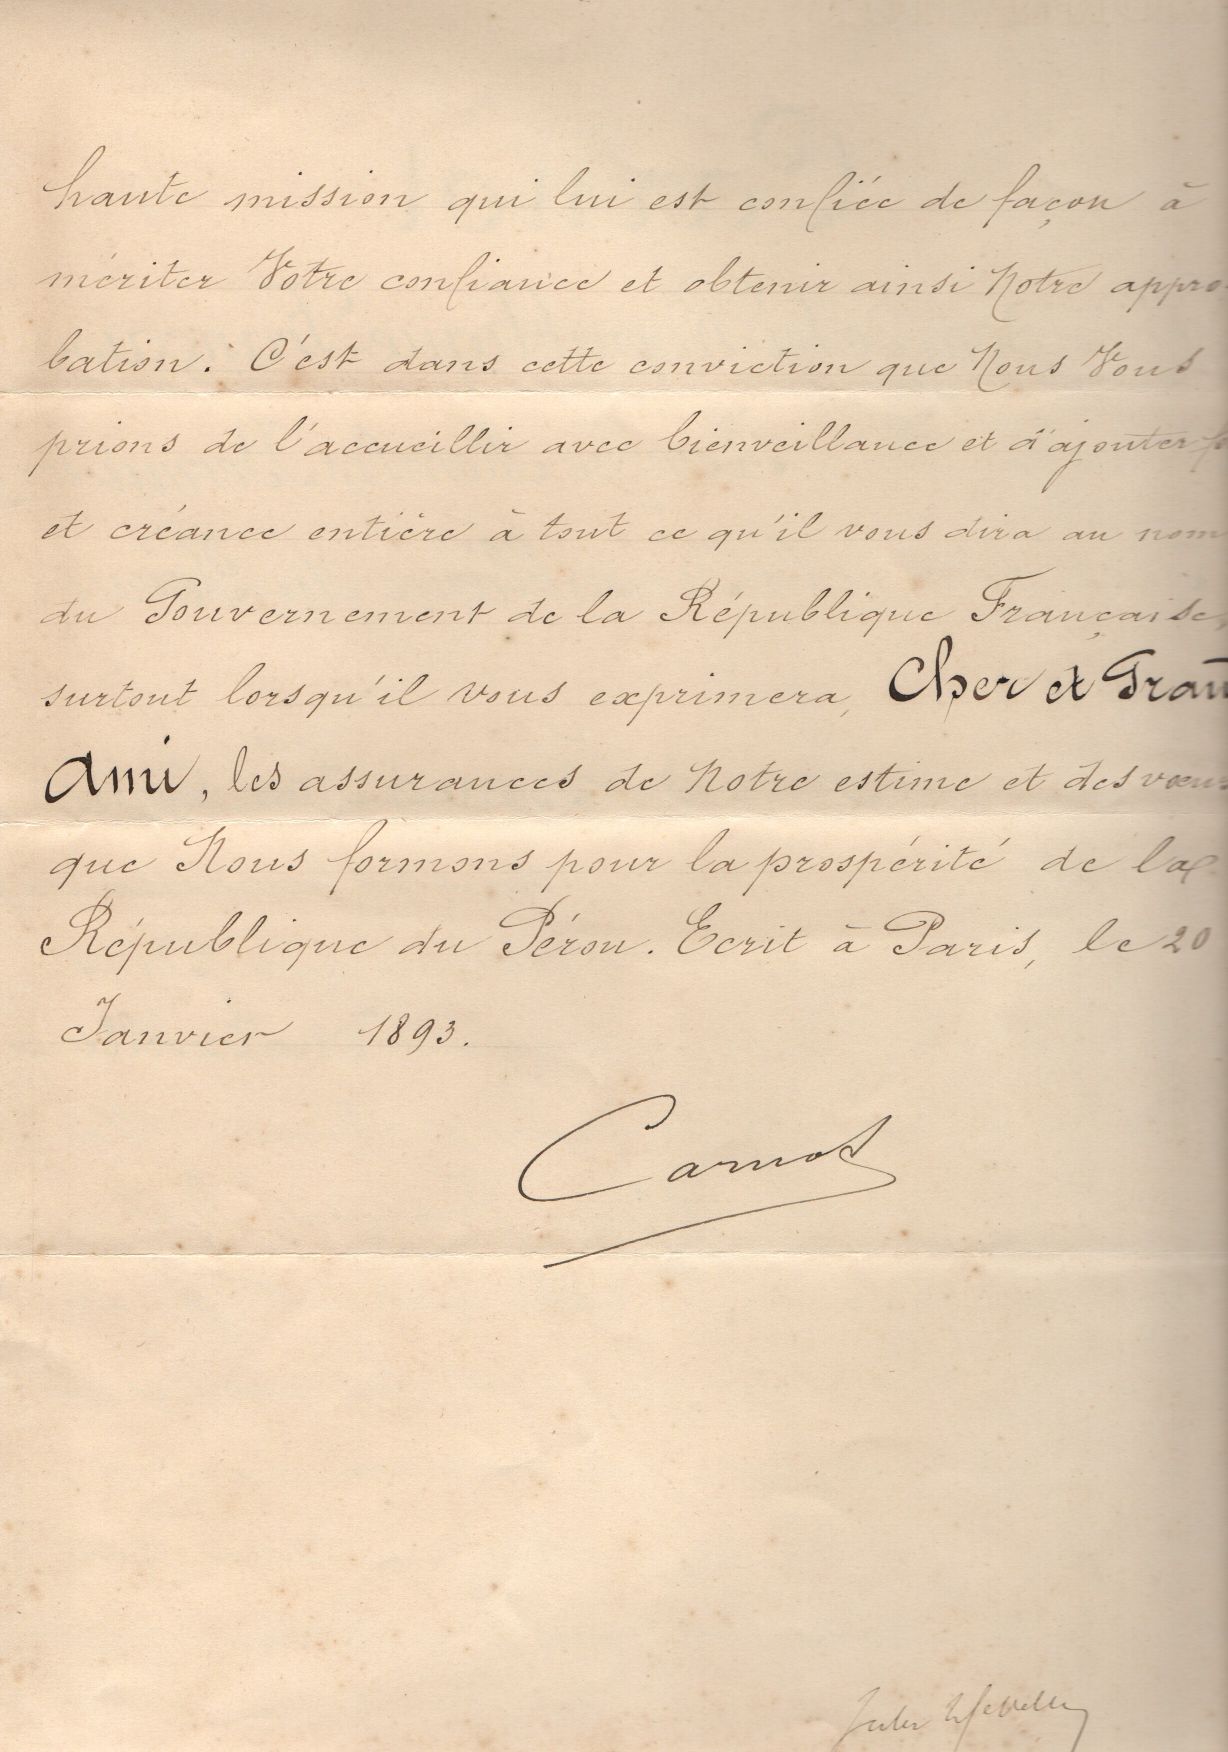 haute mission qui lui est confiée de façon à
mériter Votre confiance et obtenir ainsi Notre appro-
bation. C'est dans cette conviction que Nous Vous
prions de l'accueillir avec bienveillance et d'ajouter
et créance entière à tout ce qu'il vous dira au nom
du Gouvernement de la République Française,
surtout lorsqu'il vous exprimera, Cher et Grand
Ami, les assurances de Notre estime et des vœux
que Nous formons pour la prospérité de la
République du Pérou. Ecrit à Paris, le 20
Janvier 1893.
Carnot